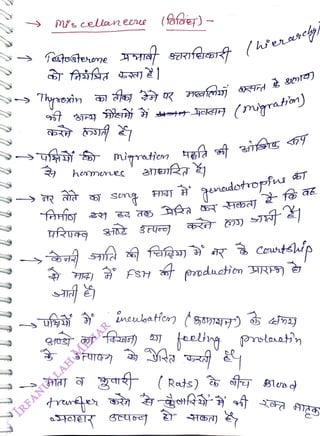 → Miscellaneous (विविध) -
→ Testosterone प्रभावी उत्तराधिकारी (hierarchy)
को नियंत्रित करता है।
→ Thyroxin का टीका देने पर मछलियाँ बसन्त के अलावा
भी अन्य मौसमों में प्रवजन (migration)
करने लगती हैं।
→ पक्षियों की migration पद्धति भी आंशिक रूप
से hormones आधारित है।
→ नर तोते का song मादा में gonadotropins का
निर्माण इस हद तक प्रेरित कर सकता है कि वह
परिपक्व अण्डे उत्पन्न करने लग जाती है।
→ केनरी जाति की चिड़िया में नर के Courtship
से मादा में FSH की production प्रारम्भ हो
जाती है।
→ पक्षियों में incubation के समय
अण्डों का दिखना या feeling prolactin
के उत्पादन को प्रेरित करती है।
→ माता व कुंवारी (Rats) के बीच Blood
transfer करने से कुँवारियों में भी
व्यवहार उत्पन्न हो सकता है।
IRFANULLAH